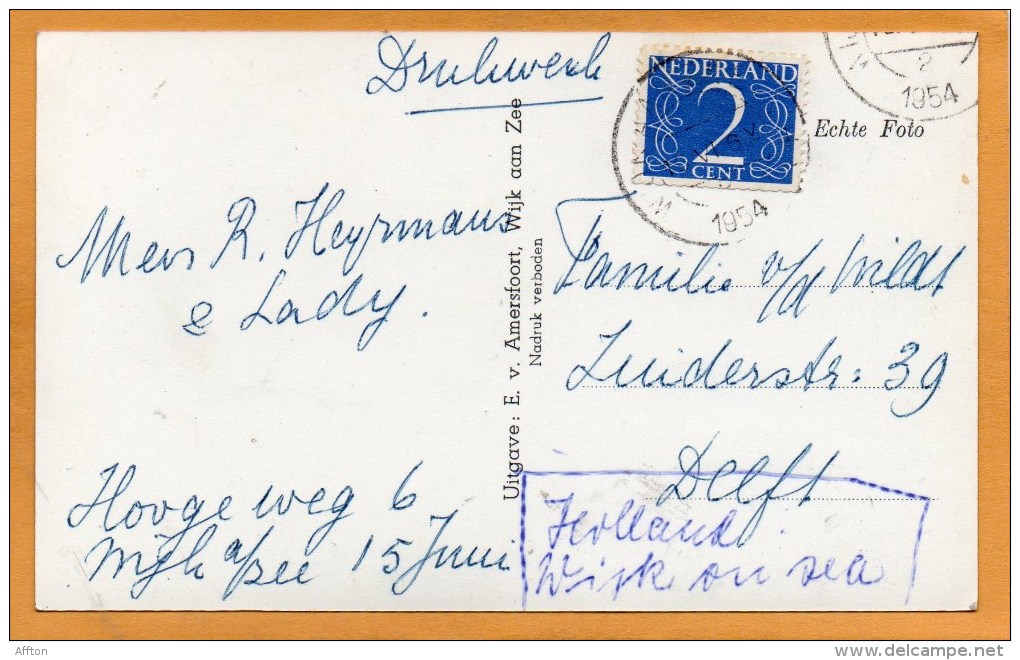 Drukwerk
NEDERLAND
2
CENT
1954
2
1954
Echte Foto
Mevr R. Heyrmans
& Lady.
Hoogeweg 6
Wijk a/zee 15 Juni
Uitgave: E. v. Amersfoort, Wijk aan Zee
Nadruk verboden
Familie v/d Wildt
Zuiderstr: 39
Delft
Holland:
Wijk on sea
Affton
www.delcampe.net